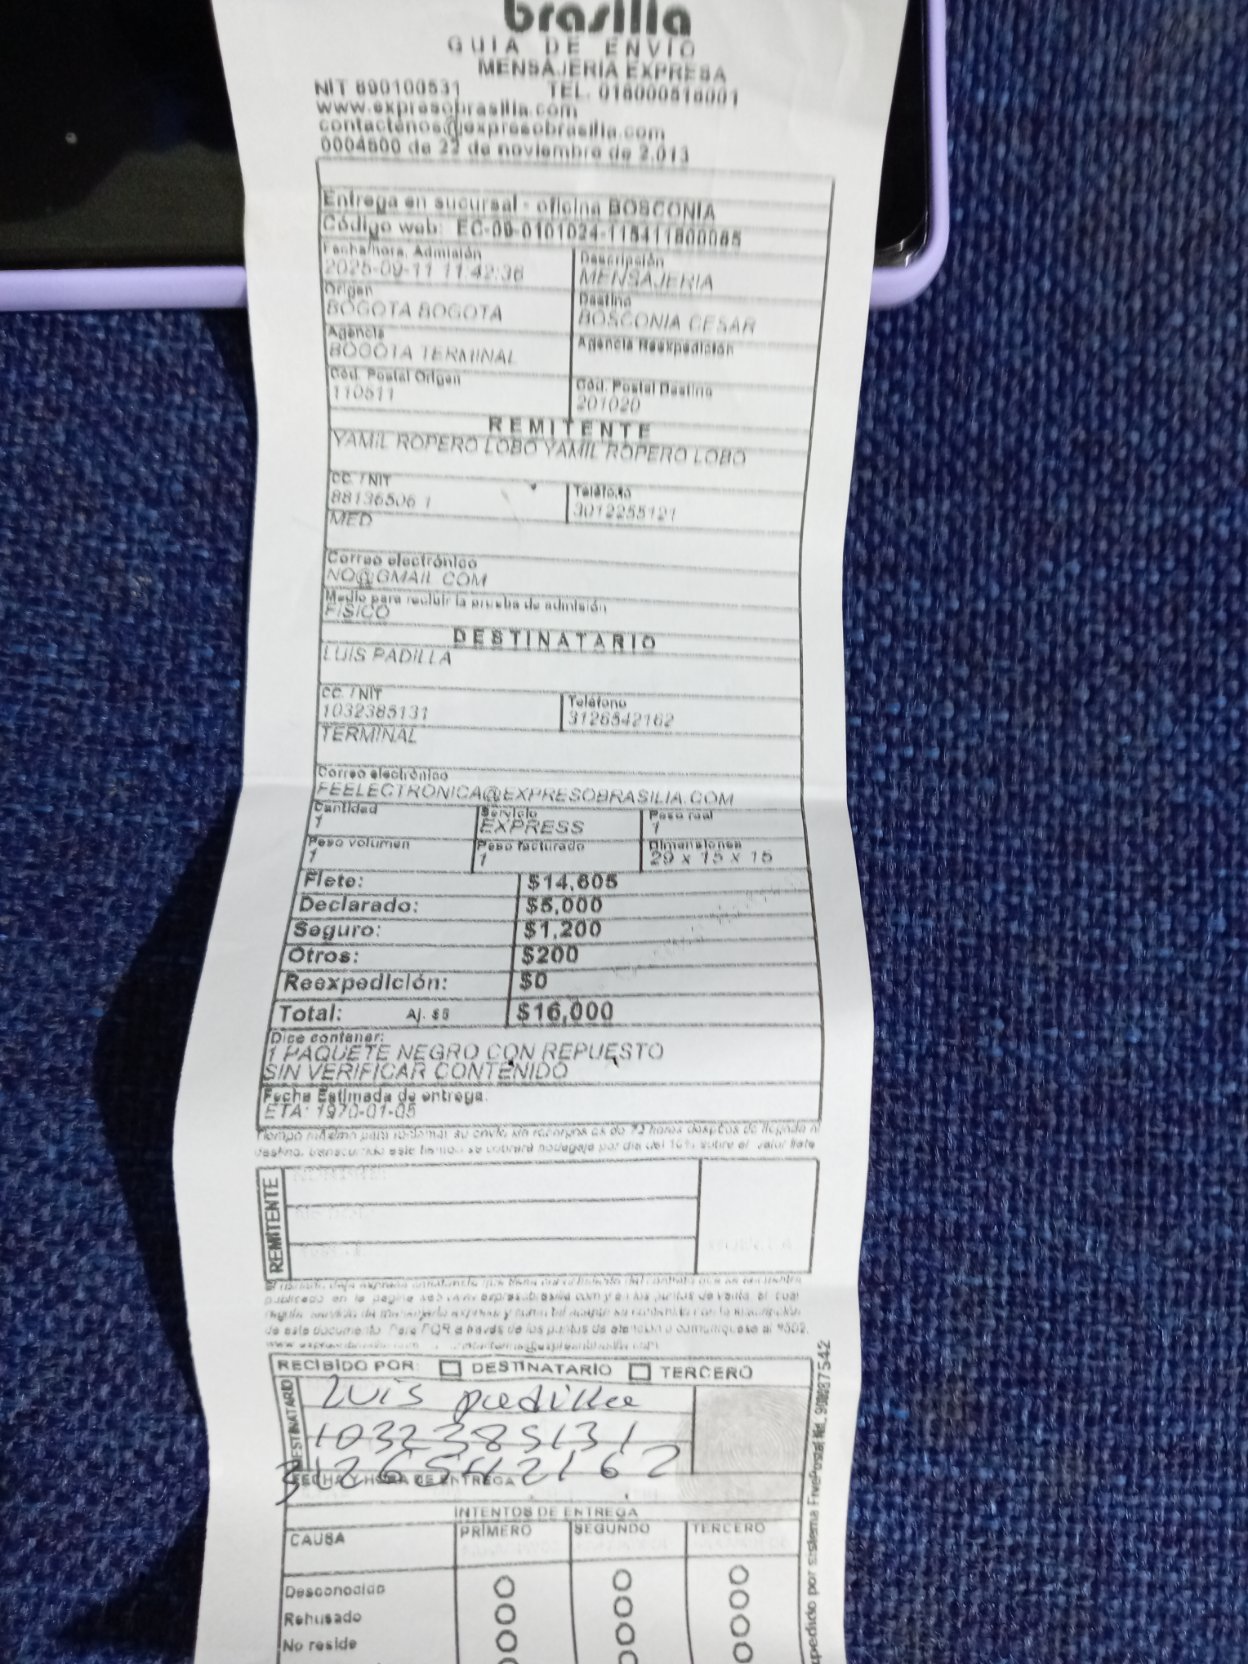 brasilia
GUIA DE ENVIO
MENSAJERIA EXPRESA
NIT 890100531 TEL. 018000518001
www.expresobrasilia.com
contactenos@expresobrasilia.com
0004800 de 22 de noviembre de 2.013
Entrega en sucursal - oficina BOSCONIA
Código web: EC-09-0101024-115411800085
Fecha/hora. Admisión
2025-09-11 11:42:36
Descripción
MENSAJERIA
Origen
BOGOTA BOGOTA
Destino
BOSCONIA CESAR
Agencia
BOGOTA TERMINAL
Agencia Reexpedición
Cód. Postal Origen
110511
Cód. Postal Destino
201020
REMITENTE
YAMIL ROPERO LOBO YAMIL ROPERO LOBO
CC. / NIT
88136506 1
Teléfono
3012255121
MED
Correo electrónico
NO@GMAIL.COM
Medio para recibir la prueba de admisión
FISICO
DESTINATARIO
LUIS PADILLA
CC. / NIT
1032385131
Teléfono
3126542162
TERMINAL
Correo electrónico
FEELECTRONICA@EXPRESOBRASILIA.COM
Cantidad
1
Servicio
EXPRESS
Peso real
1
Peso volumen
1
Peso facturado
1
Dimensiones
29 x 15 x 15
Flete: $14,605
Declarado: $5,000
Seguro: $1,200
Otros: $200
Reexpedición: $0
Total: Aj. $5 $16,000
Dice contener:
1 PAQUETE NEGRO CON REPUESTO
SIN VERIFICAR CONTENIDO
Fecha Estimada de entrega.
ETA: 1970-01-05
Tiempo máximo para reclamar su envío sin recargos es de 72 horas después de llegada al
destino, transcurrido este tiempo se cobrará bodegaje por día del 10% sobre el valor flete
REMITENTE
publicado en la página web www.expresobrasilia.com y en los puntos de venta, el cual
de este documento. Para PQR a través de los puntos de atención o comuníquese al #502.
RECIBIDO POR: DESTINATARIO TERCERO
DESTINATARIO
Luis padilla
1032385131
3126542162
FECHA Y HORA DE ENTREGA
INTENTOS DE ENTREGA
CAUSA PRIMERO SEGUNDO TERCERO
Desconocido
Rehusado
No reside
expedido por sistema FivePostal Nit. 900887542